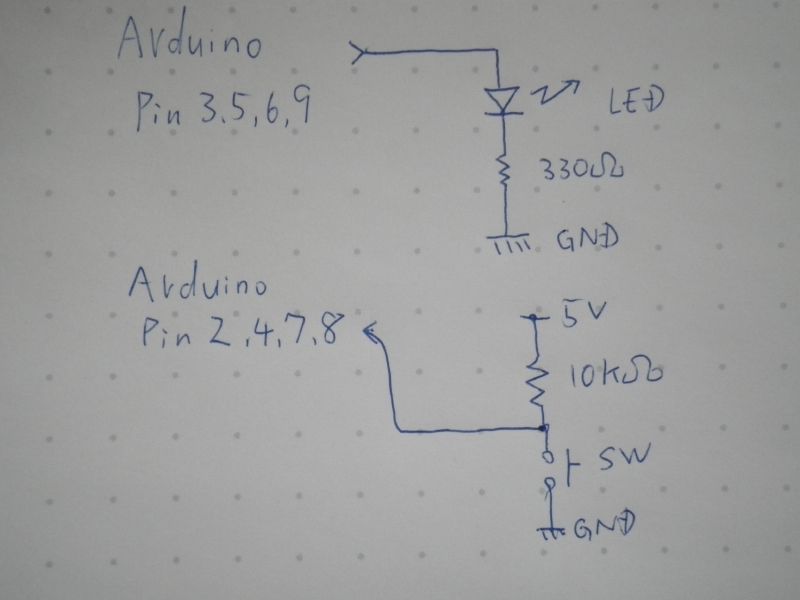 Arduino
Pin 3.5,6,9
LED
330Ω
GND
Arduino
Pin 2,4,7,8
5V
10KΩ
SW
GND